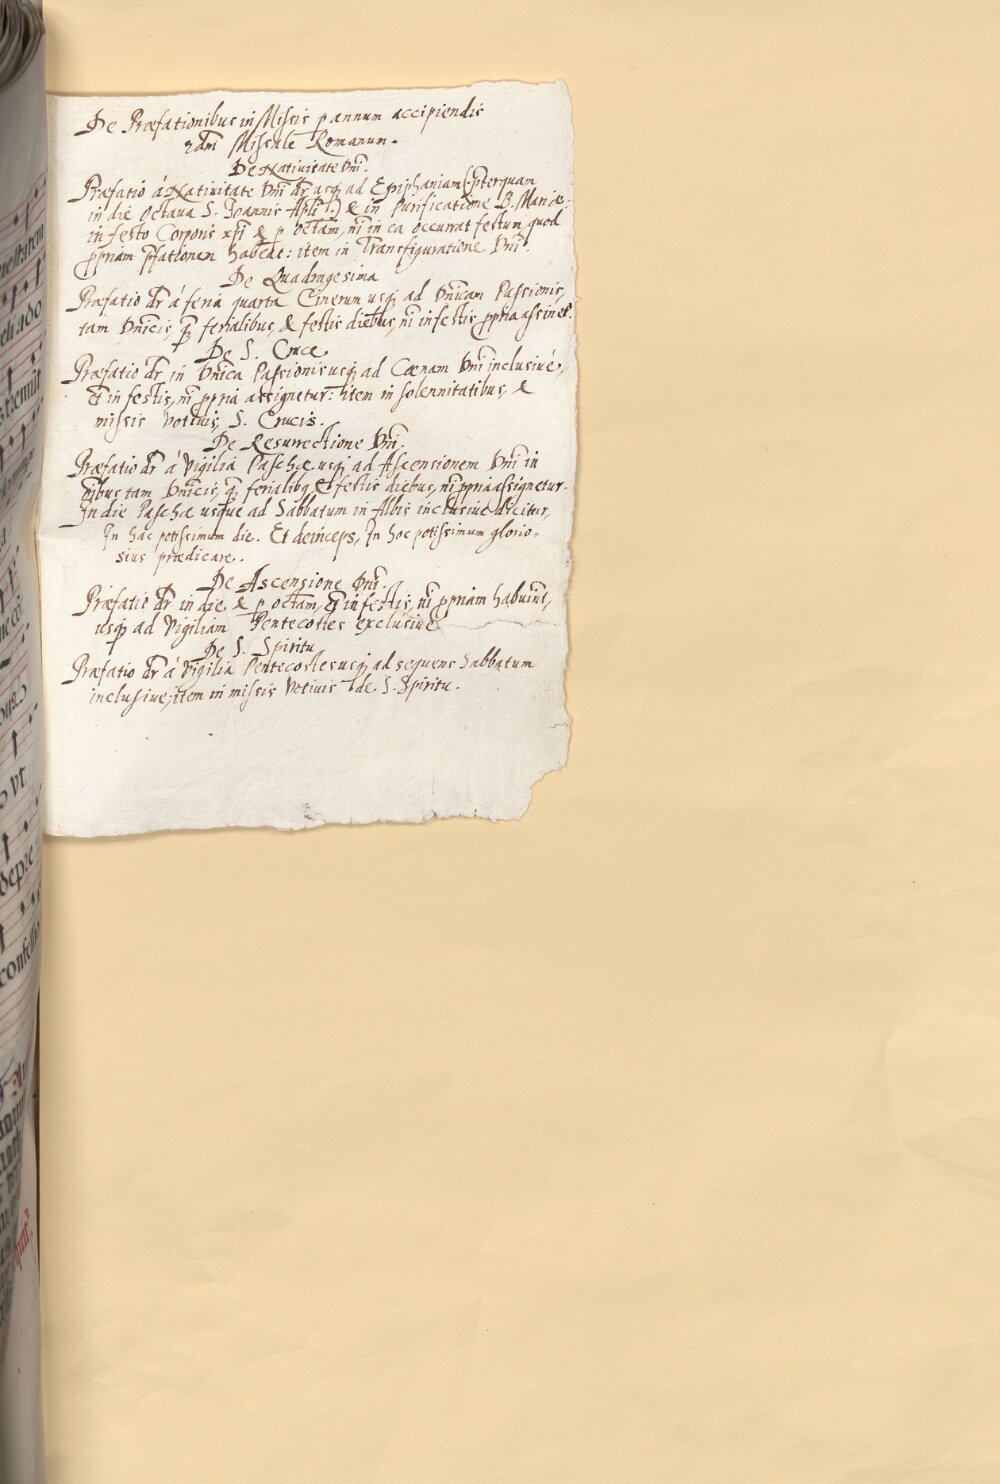 De Præfationibus in Missis p annum accipiendis
2dm Missale Romanum.
De Natiuitate Dni.
Præfatio á Natiuitate Dni dr usq; ad Epiphaniam (pterquam
in die Octaua S. Joannis Apli.) & in Purificatione B. Mariæ:
in festo Corporis xpi & p octam, ni in ea occurrat festum, quod
ppriam pfationem habeat: item in Transfiguratione Dni.
De Quadragesima
Præfatio dr á feria quarta Cinerum usq; ad Dnicam Passionis,
tam Dnicis, q ferialibus, & festis diebus, ni in festis ppria assinet.
De S. Cruce
Præfatio dr in Dnica Passionis usq; ad Cœnam Dni inclusiué,
et in festis, ni ppria assignetur: item in solennitatibus, &
missis votiuis, S. Crucis.
De Resurrectione Dni.
Præfatio dr á Vigilia Paschæ usq; ad Ascensionem Dni in
oibus tam Dnicis, q ferialibq et festis diebus, ni ppria assignetur.
In die Paschæ usque ad Sabbatum in Albis inclusiué dicitur,
In hac potissimum die. Et deinceps, In hoc potissimum glorio-
sius prædicare.
De Ascensione Dni.
Præfatio dr in die & p octam, et in festis, ni ppriam habuint,
usq; ad Vigiliam Pentecostes exclusiue
De S. Spiritu
Præfatio dr á Vigilia Pentecostes usq; ad sequens Sabbatum
inclusiue; item in missis Votiuis de S. Spiritu.